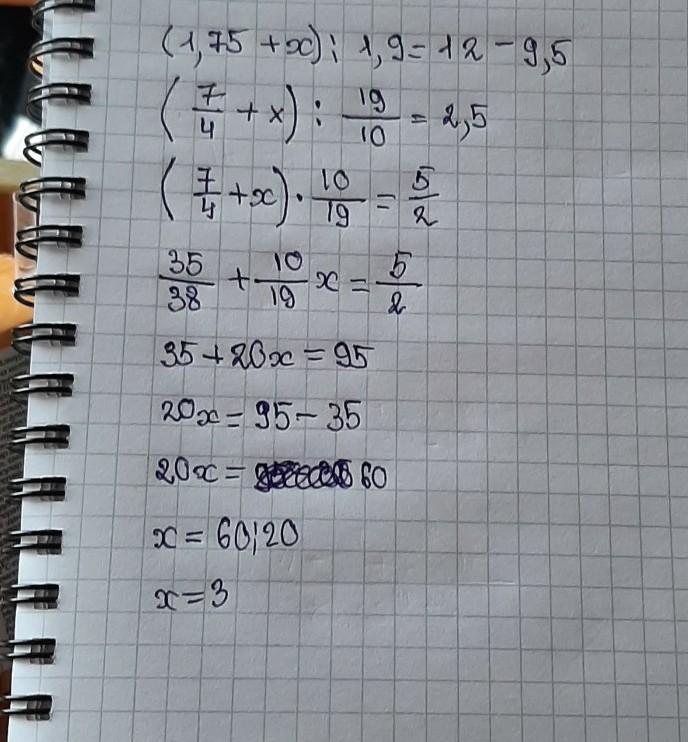 (1,75 + x) : 1,9 = 12 - 9,5
(7/4 + x) : 19/10 = 2,5
(7/4 + x) · 10/19 = 5/2
35/38 + 10/19 x = 5/2
35 + 20x = 95
20x = 95 - 35
20x = 60
x = 60 : 20
x = 3